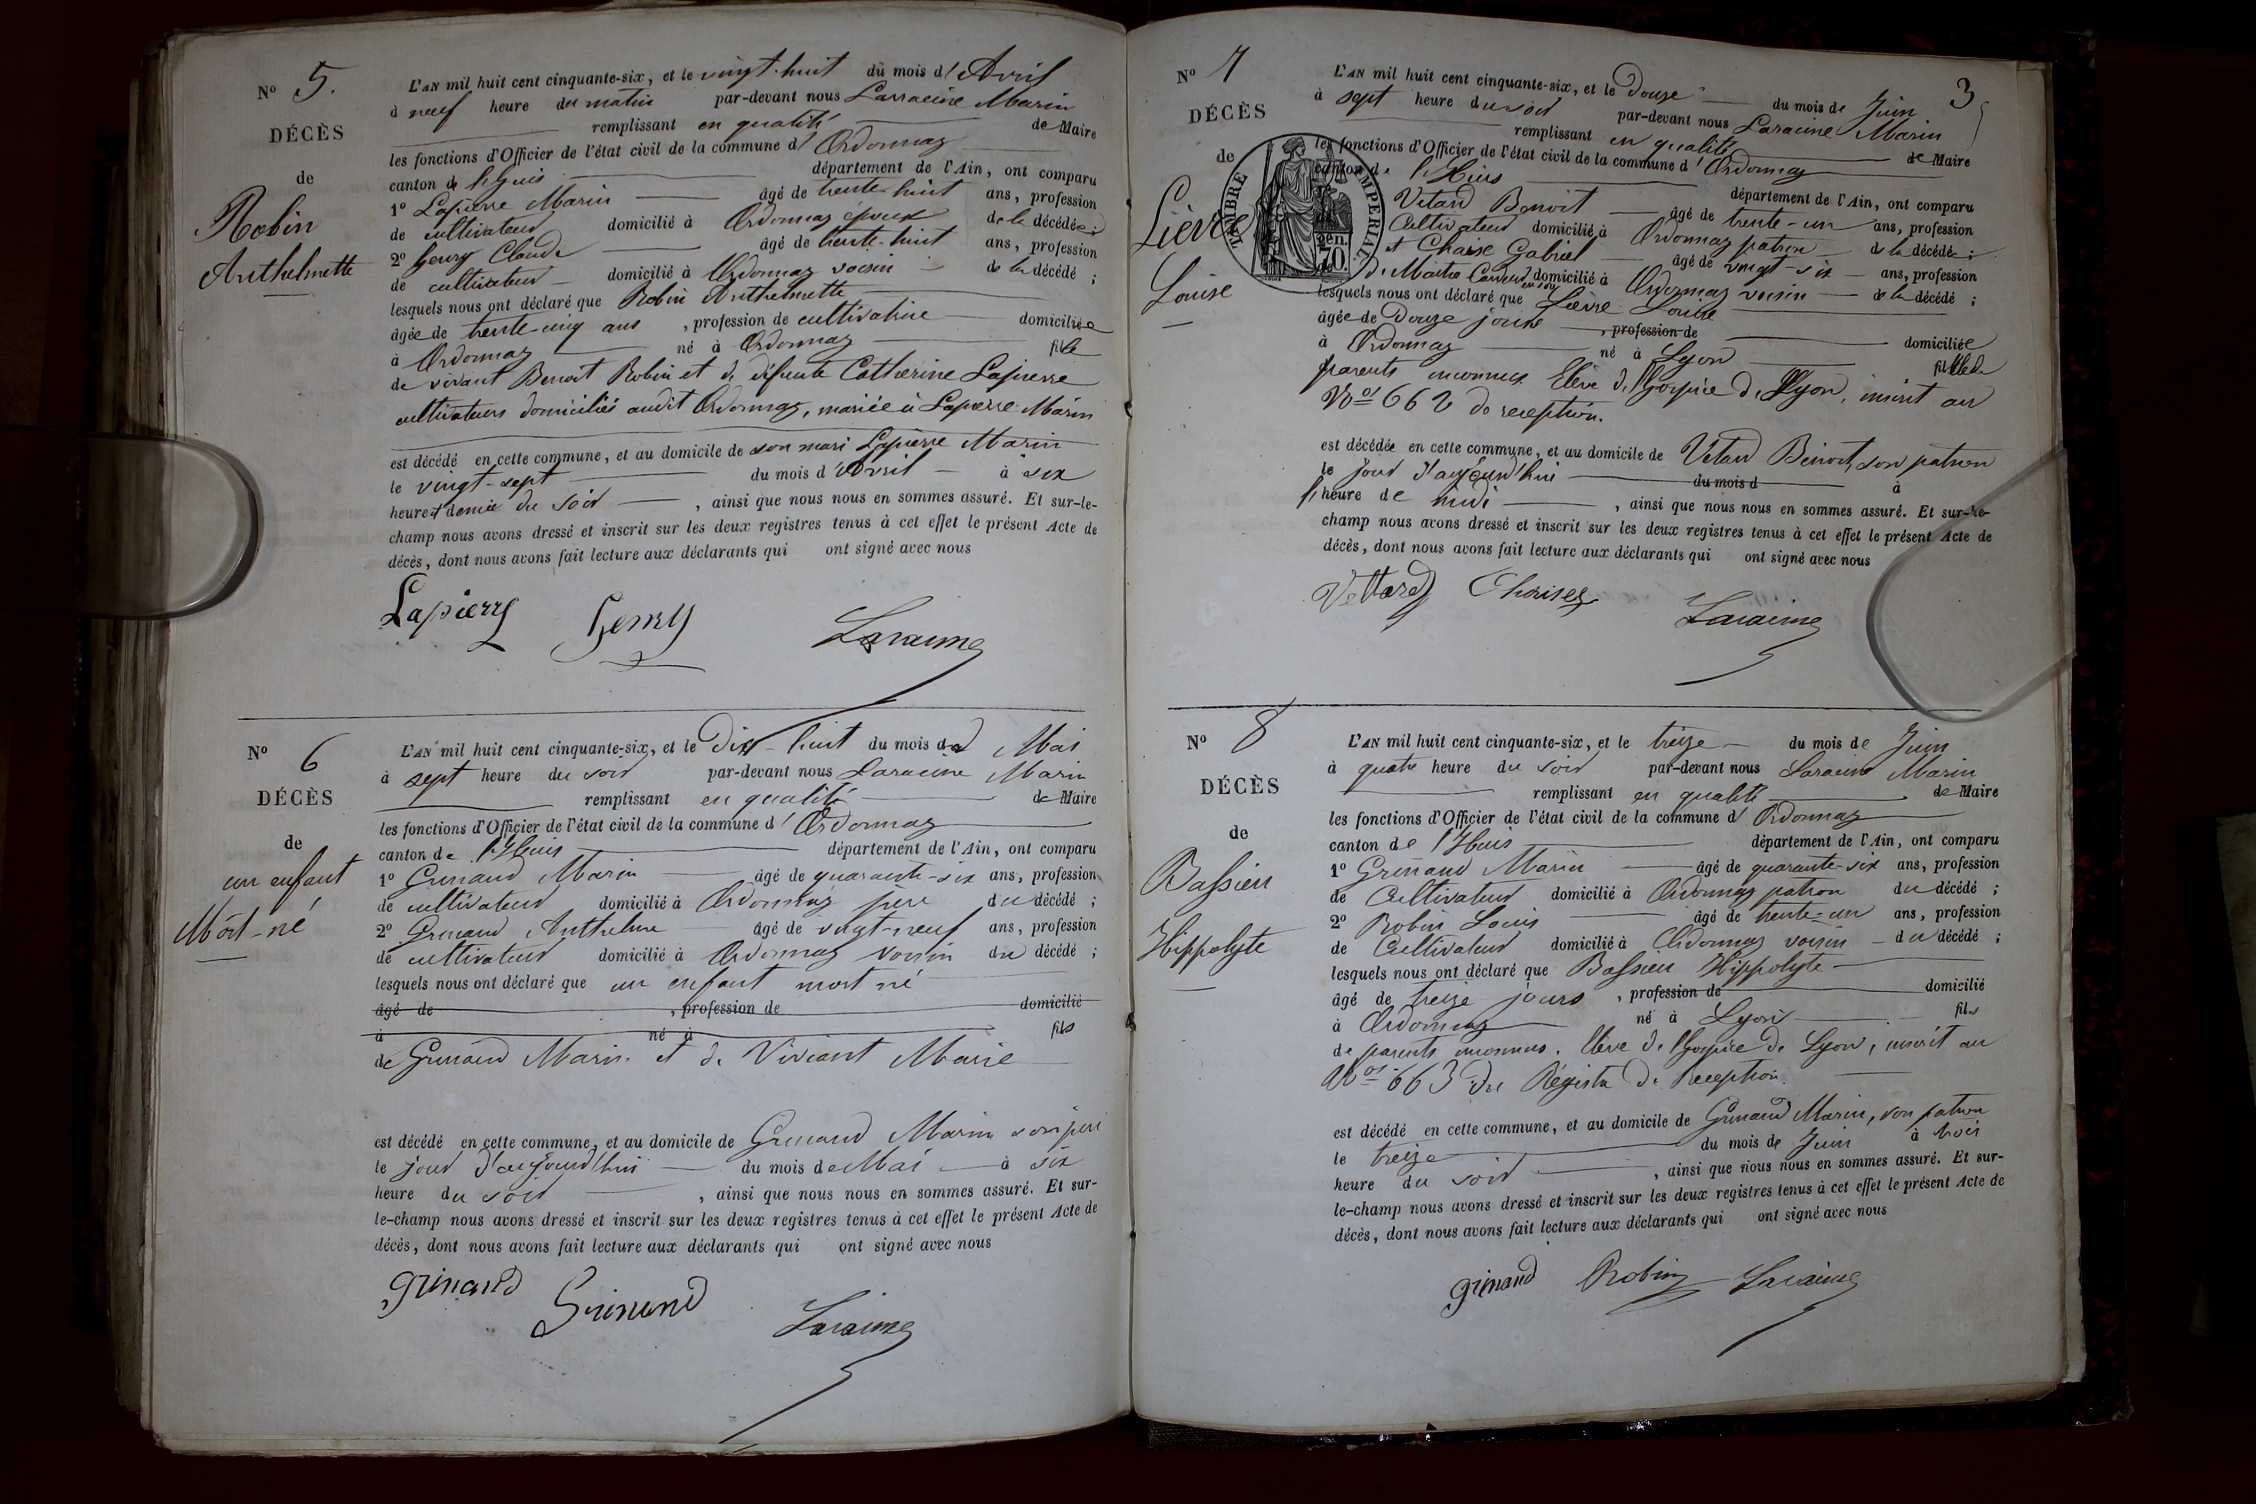 Nº 5.
DÉCÈS
de
Robin
Anthelmette
L'AN mil huit cent cinquante-six, et le vingt-huit du mois d'Avril
à neuf heure du matin par-devant nous Larracine Marin
remplissant en qualité de Maire
les fonctions d'Officier de l'état civil de la commune d'Ordonnaz
canton de lhuis département de l'Ain, ont comparu
1º Lapierre Marin âgé de trente-huit ans, profession
de cultivateur domicilié à Ordonnaz époux de la décédée;
2º henry Claude âgé de trente-huit ans, profession
de cultivateur domicilié à Ordonnaz voisin de la décédé;
lesquels nous ont déclaré que Robin Anthelmette
âgée de trente cinq ans, profession de cultivatrice domiciliée
à Ordonnaz né à Ordonnaz fille
de vivant Benoit Robin et de défunte Catherine Lapierre
cultivateurs domiciliés audit Ordonnaz, mariée à Lapierre Marin
est décédé en cette commune, et au domicile de son mari Lapierre Marin
le vingt-sept du mois d'Avril à six
heure et demie du soir, ainsi que nous nous en sommes assuré. Et sur-le-
champ nous avons dressé et inscrit sur les deux registres tenus à cet effet le présent Acte de
décès, dont nous avons fait lecture aux déclarants qui ont signé avec nous
Lapierre henry Laracine
Nº 6
DÉCÈS
de
un enfant
Mort-né
L'AN mil huit cent cinquante-six, et le Dix-huit du mois de Mai
à sept heure du soir par-devant nous Laracine Marin
remplissant en qualité de Maire
les fonctions d'Officier de l'état civil de la commune d'Ordonnaz
canton de l'Huis département de l'Ain, ont comparu
1º Grinand Marin âgé de quarante-six ans, profession
de cultivateur domicilié à Ordonnaz père du décédé;
2º Grinand Anthelme âgé de vingt-neuf ans, profession
de cultivateur domicilié à Ordonnaz voisin du décédé;
lesquels nous ont déclaré que un enfant mort né
âgé de, profession de domicilié
à né à fils
de Grinand Marin et de Viviant Marie
est décédé en cette commune, et au domicile de Grinand Marin son père
le jour d'aujourd'hui du mois de Mai à six
heure du soir, ainsi que nous nous en sommes assuré. Et sur-
le-champ nous avons dressé et inscrit sur les deux registres tenus à cet effet le présent Acte de
décès, dont nous avons fait lecture aux déclarants qui ont signé avec nous
grinand Grinand Laracine
3
Nº 7
DÉCÈS
de
Lièvre
Louise
TIMBRE IMPERIAL
70
L'AN mil huit cent cinquante-six, et le Douze du mois de Juin
à sept heure du soir par-devant nous Laracine Marin
remplissant en qualité de Maire
les fonctions d'Officier de l'état civil de la commune d'Ordonnaz
canton de l'Huis département de l'Ain, ont comparu
Vetard Benoit âgé de trente-un ans, profession
Cultivateur domicilié à Ordonnaz patron de la décédée;
et Chaise Gabriel âgé de vingt-six ans, profession
de Maitre domicilié à Ordonnaz voisin de la décédé;
lesquels nous ont déclaré que Lièvre Louise
âgée de Douze jours, profession de domiciliée
à Ordonnaz né à Lyon fille de
parents inconnus Elève de l'hospice de Lyon, inscrit au
Nº 662 de reception.
est décédée en cette commune, et au domicile de Vetard Benoit, son patron
le jour d'aujourd'hui du mois d à
l'heure de midi, ainsi que nous nous en sommes assuré. Et sur-le-
champ nous avons dressé et inscrit sur les deux registres tenus à cet effet le présent Acte de
décès, dont nous avons fait lecture aux déclarants qui ont signé avec nous
Vettard Chaise Laracine
Nº 8
DÉCÈS
de
Bassieu
Hippolyte
L'AN mil huit cent cinquante-six, et le treize du mois de Juin
à quatre heure du soir par-devant nous Laracine Marin
remplissant en qualité de Maire
les fonctions d'Officier de l'état civil de la commune d'Ordonnaz
canton de l'Huis département de l'Ain, ont comparu
1º Grinand Marin âgé de quarante-six ans, profession
de Cultivateur domicilié à Ordonnaz patron du décédé;
2º Robin Louis âgé de trente-un ans, profession
de Cultivateur domicilié à Ordonnaz voisin du décédé;
lesquels nous ont déclaré que Bassieu Hippolyte
âgé de treize jours, profession de domicilié
à Ordonnaz né à Lyon fils
de parents inconnus. Elève de l'hospice de Lyon, inscrit au
Nº 663 du Régistre de reception.
est décédé en cette commune, et au domicile de Grinand Marin, son patron
le treize du mois de Juin à trois
heure du soir, ainsi que nous nous en sommes assuré. Et sur-
le-champ nous avons dressé et inscrit sur les deux registres tenus à cet effet le présent Acte de
décès, dont nous avons fait lecture aux déclarants qui ont signé avec nous
grinand Robin Laracine